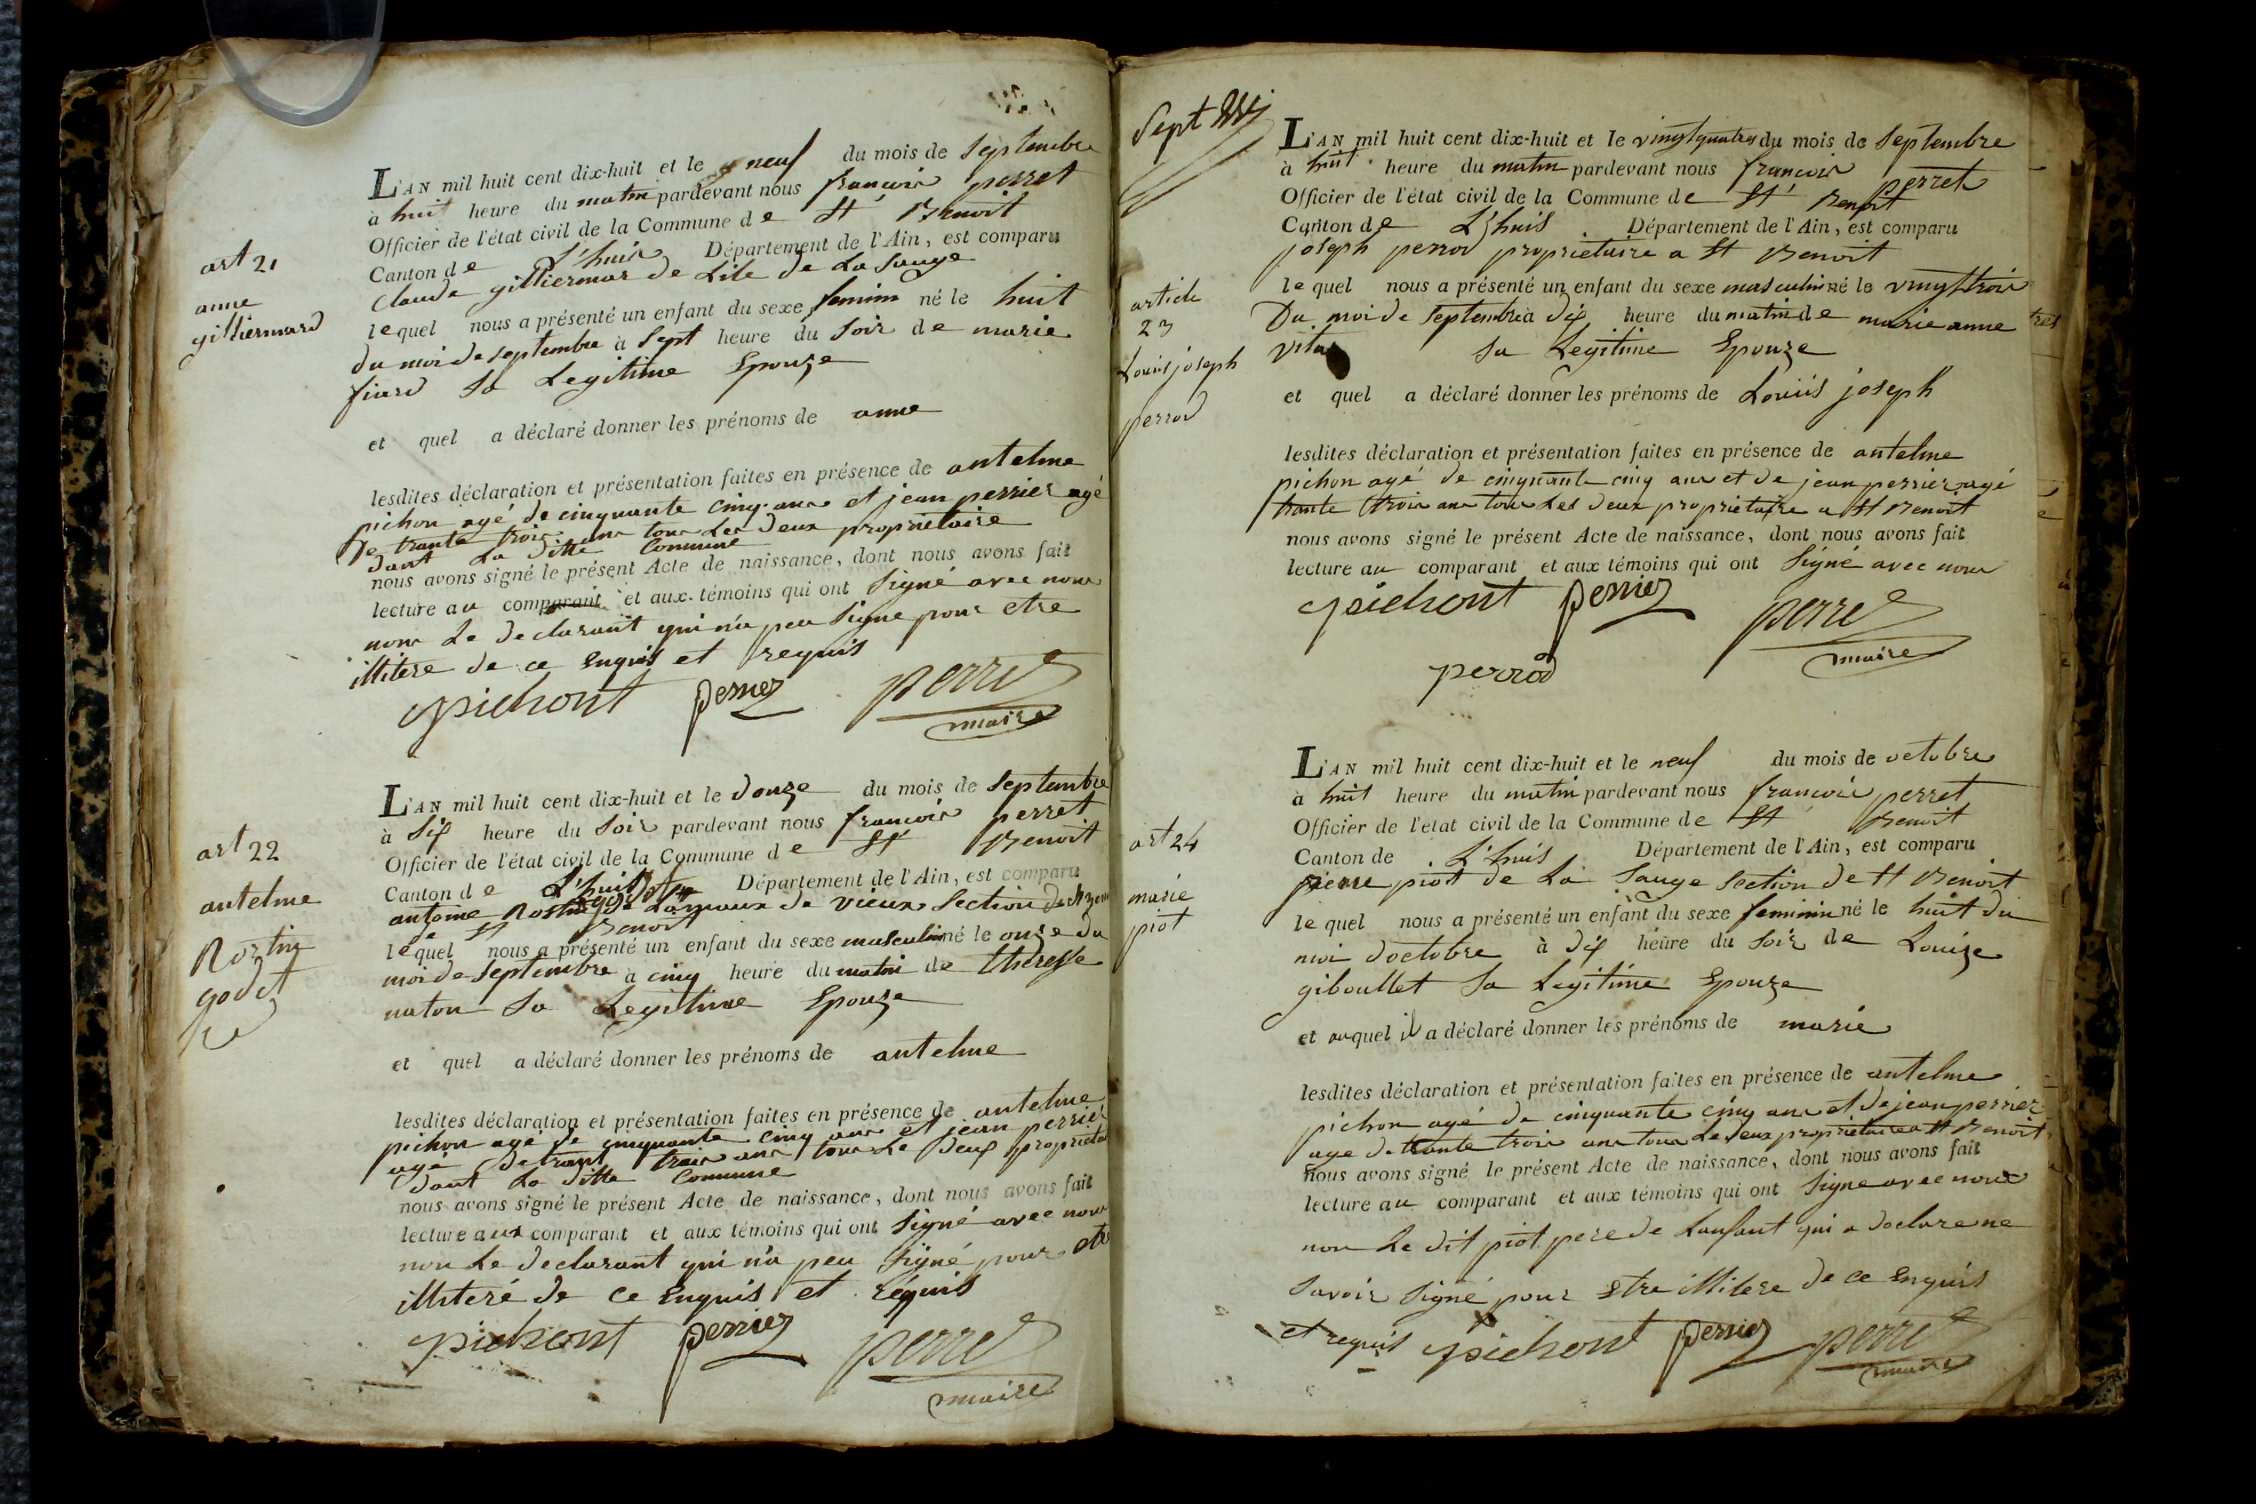 art 21
anne
gilliermard
L'AN mil huit cent dix-huit et le neuf du mois de Septembre
à huit heure du matin pardevant nous francois perret
Officier de l'état civil de la Commune de St Benoit
Canton de L'huis Département de l'Ain, est comparu
Claude gilliermar de Lile de La Sauge
lequel nous a présenté un enfant du sexe feminin né le huit
du moi de septembre à Sept heure du Soir de marie
fiard Sa Legitime Epouze
et quel a déclaré donner les prénoms de anne
lesdites déclaration et présentation faites en présence de antelme
pichon agé de cinquante cinq ans et jean perrier agé
de trante trois ans tous Les deux propriétaire
dant La ditte Commune
nous avons signé le présent Acte de naissance, dont nous avons fait
lecture au comparant et aux témoins qui ont Signé avec nous
non Le declarant qui n'a peu Signe pour etre
illitere de ce Enquis et requis
pichont perrier perret
maire
art 22
antelme
Rostin
godet
L'AN mil huit cent dix-huit et le douze du mois de Septembre
à Six heure du Soir pardevant nous francois perret
Officier de l'état civil de la Commune de St Benoit
Canton de L'huis Département de l'Ain, est comparu
antoine Rostin de vieux Section de
St Benoit
lequel nous a présenté un enfant du sexe masculin né le onze du
moi de Septembre à cinq heure du matin de theresse
naton Sa Legitime Epouze
et quel a déclaré donner les prénoms de antelme
lesdites déclaration et présentation faites en présence de antelme
pichon agé de cinquante cinq ans et jean perrier
agé de trant trois ans tous Le deux proprietai
dant La ditte Commune
nous avons signé le présent Acte de naissance, dont nous avons fait
lecture aux comparant et aux témoins qui ont Signé avec nous
non Le declarant qui n'a peu Signé pour etre
illiteré de ce Enquis et réquis
pichont perrier perret
maire
Sept
article
23
Louis joseph
perrod
L'AN mil huit cent dix-huit et le vingtquatre du mois de Septembre
à huit heure du matin pardevant nous francois perret
Officier de l'état civil de la Commune de St Benoit
Canton de L'huis Département de l'Ain, est comparu
joseph perrod proprietaire a St Benoit
lequel nous a présenté un enfant du sexe masculin né le vingttrois
Du moi de Septembre à dix heure du matin de marie anne
vita Sa Legitime Epouze
et quel a déclaré donner les prénoms de Louis joseph
lesdites déclaration et présentation faites en présence de antelme
pichon agé de cinquante cinq ans et de jean perrier agé
trante trois ans tous Les deux proprietaire a St Benoit
nous avons signé le présent Acte de naissance, dont nous avons fait
lecture au comparant et aux témoins qui ont Signé avec nous
pichont perrier perret
maire
perrod
art 24
marie
piot
L'AN mil huit cent dix-huit et le neuf du mois de octobre
à huit heure du matin pardevant nous francois perret
Officier de l'état civil de la Commune de St Benoit
Canton de L'huis Département de l'Ain, est comparu
pierre piot de La Sauge Section de St Benoit
lequel nous a présenté un enfant du sexe feminin né le huit du
moi doctobre à dix heure du soir de Louize
giboullet Sa Legitime Epouze
et auquel il a déclaré donner les prénoms de marie
lesdites déclaration et présentation faites en présence de antelme
pichon agé de cinquante cinq ans et de jean perrier
age de trante trois ans tous Le deux propriétaire a St Benoit
nous avons signé le présent Acte de naissance, dont nous avons fait
lecture au comparant et aux témoins qui ont Signe avec nous
non Le dit piot pere de Lanfant qui a declare ne
Savoir Signé pour Etre illitere de ce Enquis
et requis pichont perrier perret
maire